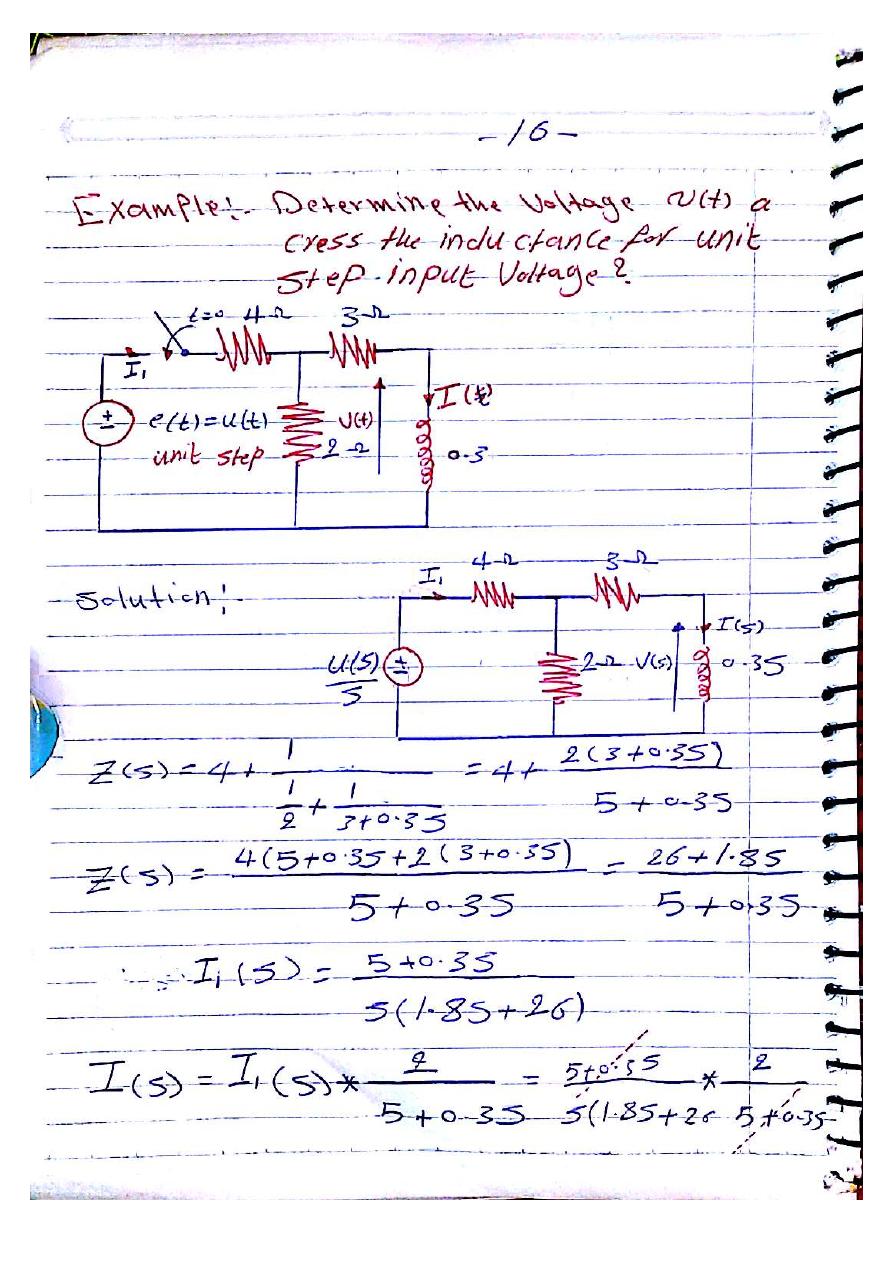 -16-
Example:- Determine the Voltage v(t) a
cress the inductance for unit
step input Voltage?
t=0 4Ω 3Ω
I₁
I(t)
e(t)=u(t) V(t)
unit step 2Ω 0.3
Solution:-
I₁ 4Ω 3Ω
I(s)
u(s)/s 2Ω V(s) 0.3s
Z(s) = 4 + 1/(1/2 + 1/(3+0.3s)) = 4 + 2(3+0.3s)/(5+0.3s)
Z(s) = (4(5+0.3s+2(3+0.3s))/(5+0.3s) = (26+1.8s)/(5+0.3s)
∴ I₁(s) = (5+0.3s)/(s(1.8s+26))
I(s) = I₁(s) * 2/(5+0.3s) = (5+0.3s)/(s(1.8s+26) * 2/(5+0.3s)